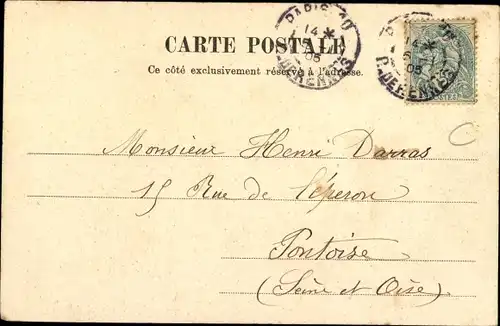 PARIS
14
05
CARTE POSTALE
Ce côté exclusivement réservé à l'adresse.
Monsieur Henri Darras
15 Rue de l'éperon
Pontoise
(Seine et Oise)